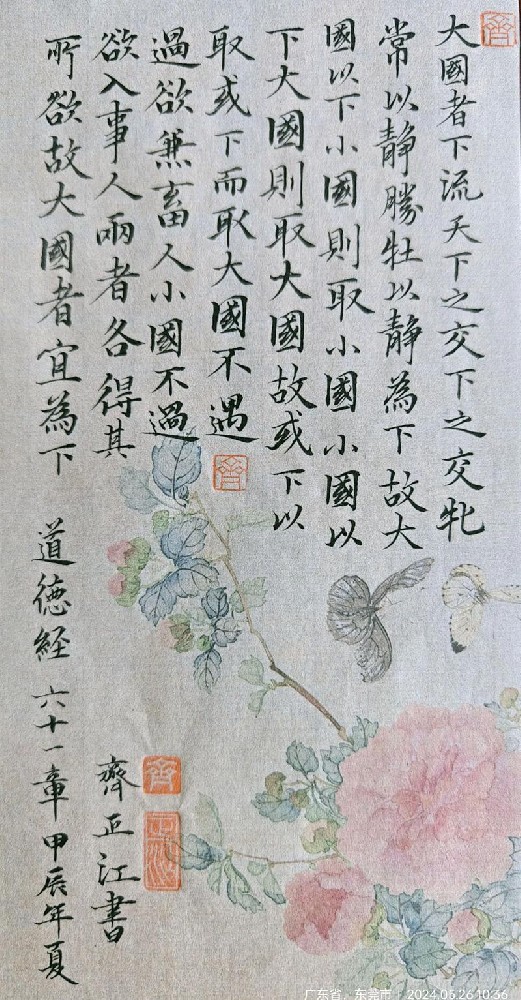 大國者下流天下之交下之交牝
常以靜勝牡以靜為下故大
國以下小國則取小國小國以
下大國則取大國故或下以
取或下而取大國不遇
過欲兼畜人小國不過
欲入事人兩者各得其
所欲故大國者宜為下 道德經 六十一章 甲辰年夏
齊正江書
齊
齊
齊
广东省·东莞市 2024.05.26 10:36